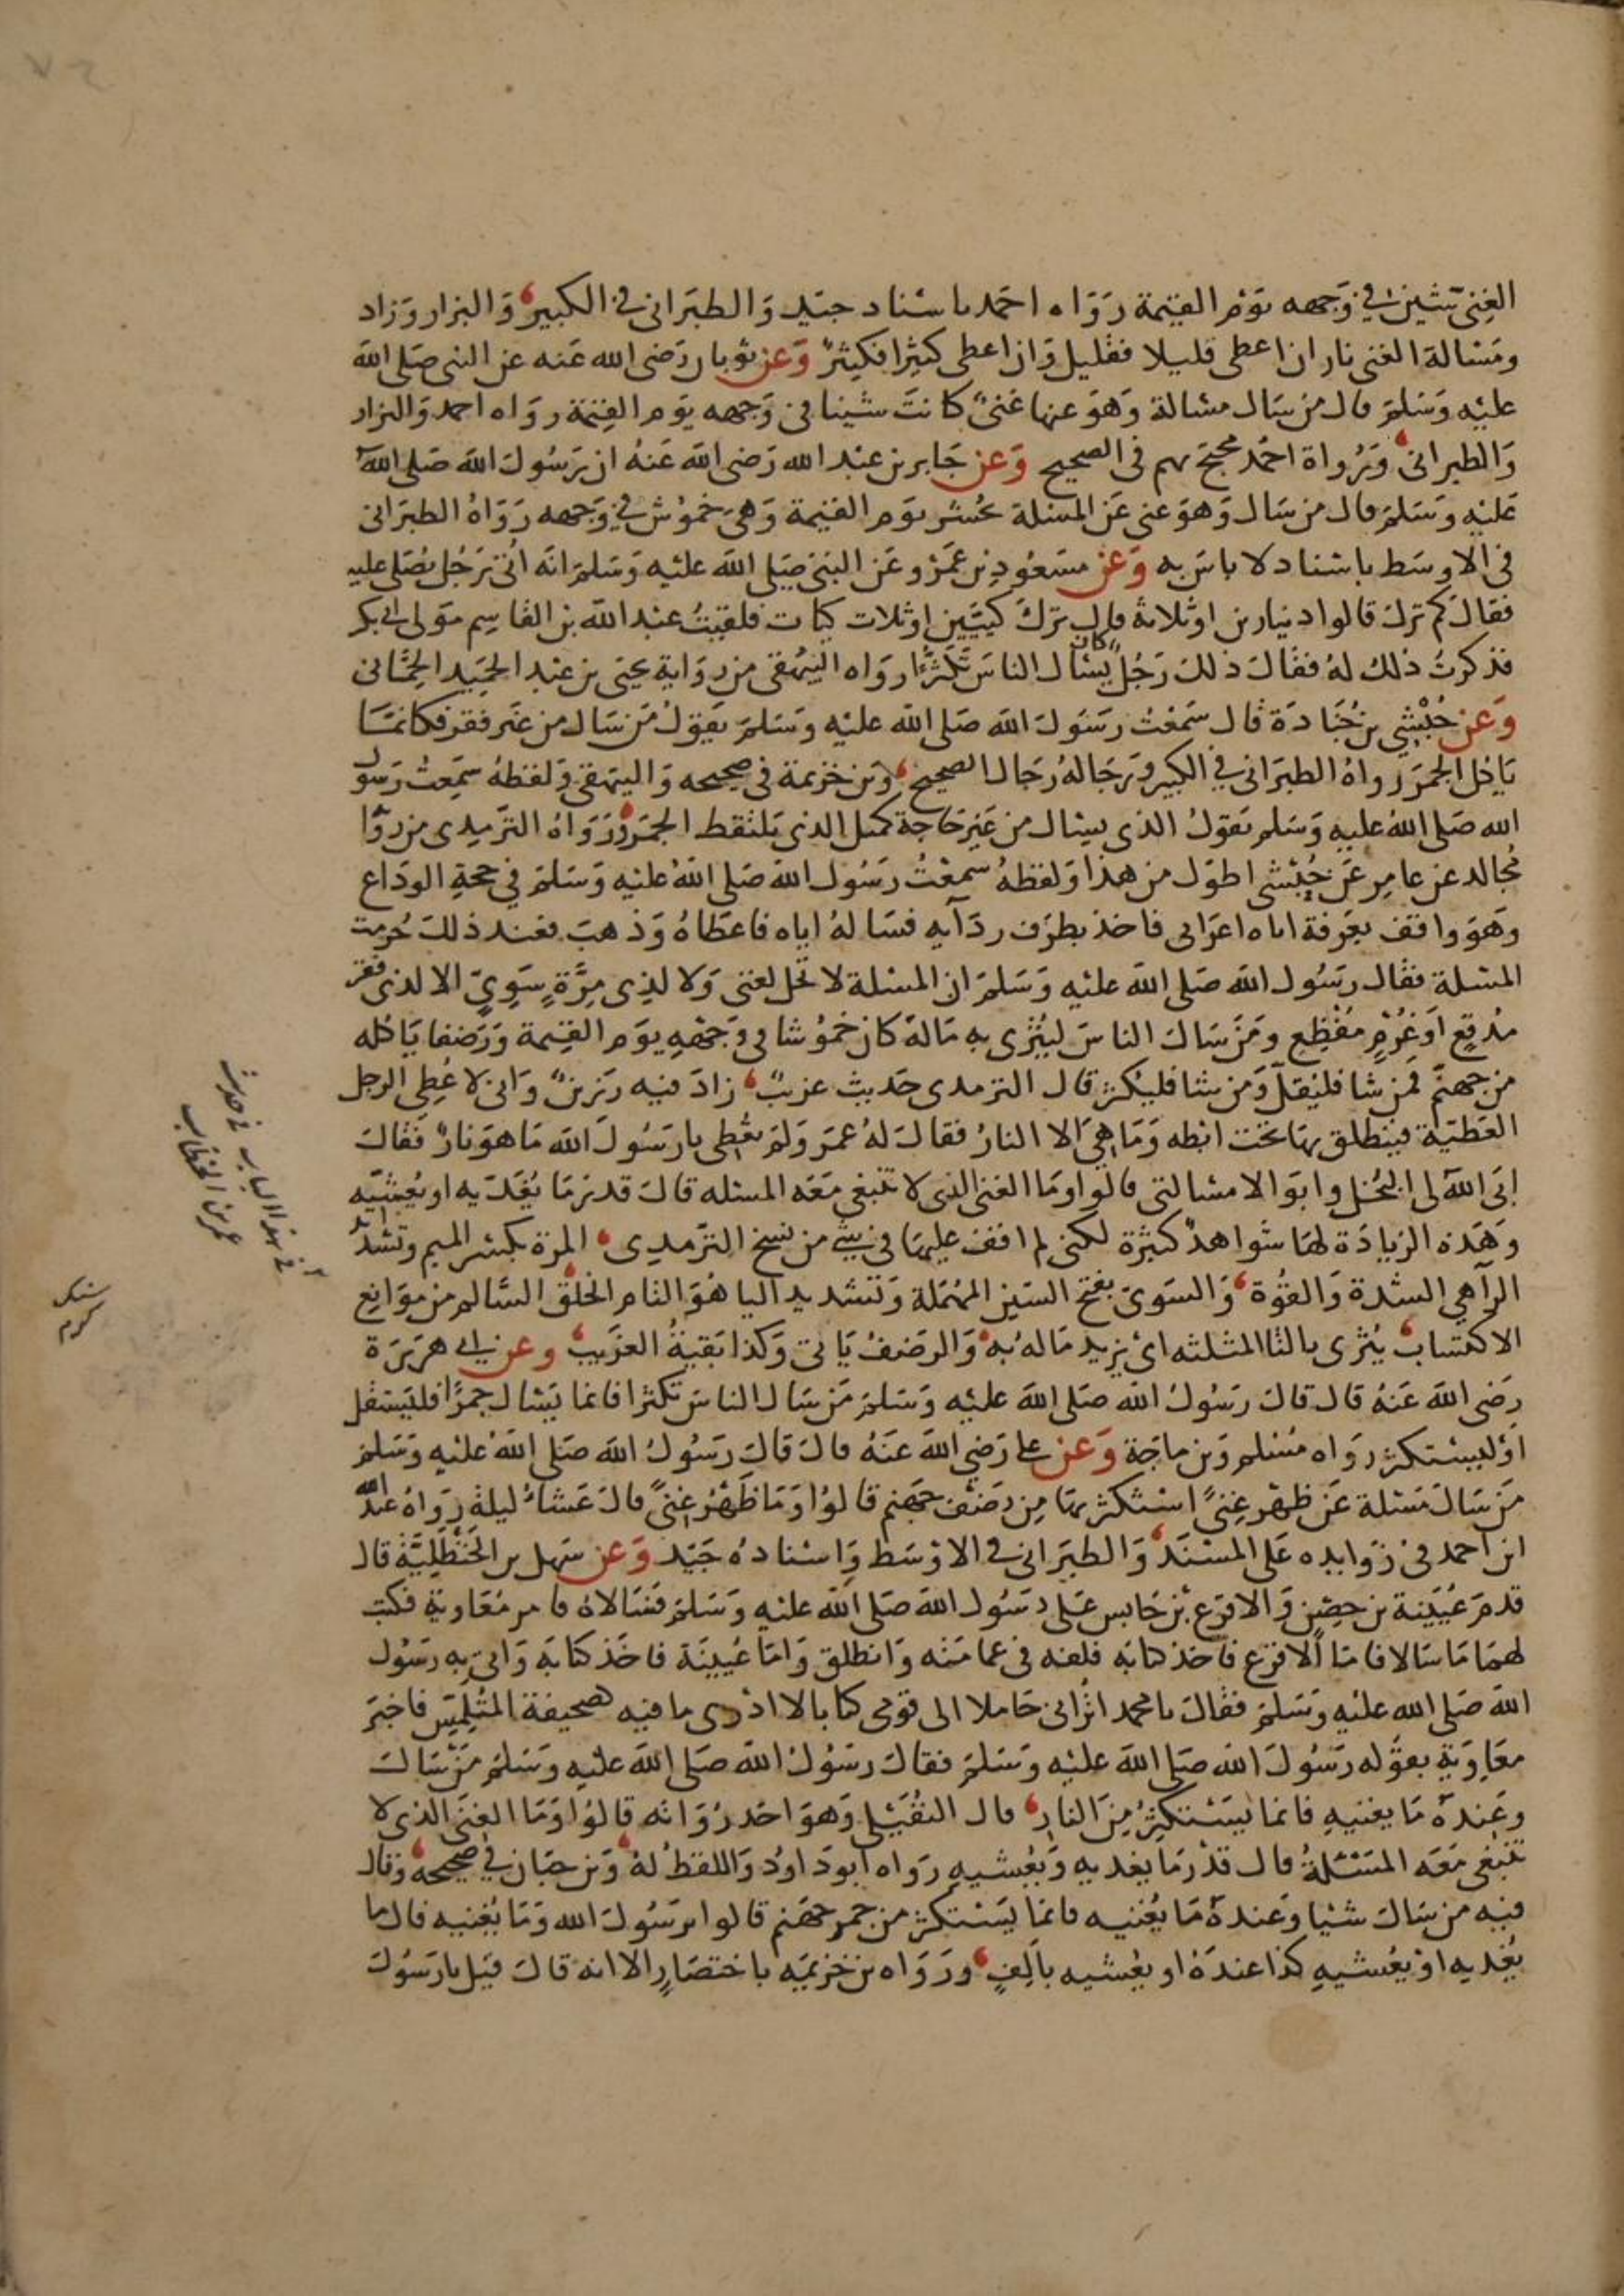 الغنى شين في وجهه يوم القيمة رواه احمد باسناد جيد والطبراني في الكبير والبزار وزاد
ومسالة الغنى نار ان اعطى قليلا فقليل وان اعطى كثيرا فكثير وعن ثوبان رضى الله عنه عن النبى صلى الله
عليه وسلم قال من سال مسالة وهو عنها غنى كانت شينا في وجهه يوم القيمة رواه احمد والبزار
والطبراني ورواة احمد محتج بهم في الصحيح وعن جابر بن عبد الله رضى الله عنه ان رسول الله صلى الله
عليه وسلم قال من سال وهو غنى عن المسئلة يحشر يوم القيمة وهى خموش في وجهه رواه الطبرانى
في الاوسط باسناد لا باس به وعن مسعود بن عمرو عن النبى صلى الله عليه وسلم انه اتى برجل يصلى عليه
فقال كم ترك قالوا دينارين او ثلاثة قال ترك كيتين او ثلاث كيات فلقيت عبد الله بن القاسم مولى ابي بكر
فذكرت ذلك له فقال ذلك رجل كان يسال الناس تكثرا رواه البيهقى من رواية يحيى بن عبد الحميد الحمانى
وعن حبشي بن جنادة قال سمعت رسول الله صلى الله عليه وسلم يقول من سال من غير فقر فكانما
ياكل الجمر رواه الطبراني في الكبير ورجاله رجال الصحيح وبن خزيمة في صحيحه والبيهقى ولفظه سمعت رسول
الله صلى الله عليه وسلم يقول الذى يسال من غير حاجة كمثل الذى يلتقط الجمر ورواه الترمذى من روا
مجالد عن عامر عن حبشى اطول من هذا ولفظه سمعت رسول الله صلى الله عليه وسلم في حجة الوداع
وهو واقف بعرفة اتاه اعرابى فاخذ بطرف ردآيه فساله اياه فاعطاه وذهب فعند ذلك حرمت
المسئلة فقال رسول الله صلى الله عليه وسلم ان المسئلة لا تحل لغنى ولا لذى مرة سوي الا لذى فقر
مدقع او غرم مفظع ومن سال الناس ليثرى به ماله كان خموشا في وجهه يوم القيمة ورضفا ياكله
من جهنم فمن شا فليقل ومن شا فليكثر قال الترمذى حديث غريب زاد فيه رزين وانى لاعطى الرجل
العطية فينطلق بها تحت ابطه وما هي الا النار فقال له عمر ولم تعطى يارسول الله ما هو نار فقال
ابى الله لى البخل وابوا الا مسالتى قالوا وما الغنى الذى لا تنبغى معه المسئله قال قدر ما يغديه او يعشيه
وهذه الزيادة لها شواهد كثيرة لكنى لم اقف عليها في شئ من نسخ الترمذى المرة بكسر الميم وتشديد
الرآهي الشدة والقوة والسوى بفتح السين المهملة وتشديد اليا هو التام الخلق السالم من موانع
الاكتساب يثرى بالثا المثلثه اى يزيد ماله به والرضف ياتى وكذا بقية الغريب وعن ابي هريرة
رضى الله عنه قال قال رسول الله صلى الله عليه وسلم من سال الناس تكثرا فانما يسال جمرا فليستقل
او ليستكثر رواه مسلم وبن ماجة وعن على رضى الله عنه قال قال رسول الله صلى الله عليه وسلم
من سال مسئلة عن ظهر غنى استكثر بها من رضف جهنم قالوا وما ظهر غنى قال عشاء ليلة رواه عبد الله
ابن احمد في زوايده على المسند والطبرانى في الاوسط واسناده جيد وعن سهل بن الحنظلية قال
قدم عيينة بن حصين والاقرع بن حابس على رسول الله صلى الله عليه وسلم فسالاه فامر معاوية فكتب
لهما ما سالا فاما الاقرع فاخذ كتابه فلفه في عمامته وانطلق واما عيينة فاخذ كتابه واتى به رسول
الله صلى الله عليه وسلم فقال يا محمد اترانى حاملا الى قومى كتابا لا ادرى ما فيه كصحيفة المتلمس فاخبر
معاوية بقوله رسول الله صلى الله عليه وسلم فقال رسول الله صلى الله عليه وسلم من سال
وعنده ما يغنيه فانما يستكثر من النار قال النفيلى وهو احد رواته قالوا وما الغنى الذى لا
تنبغى معه المسئلة قال قدر ما يغديه ويعشيه رواه ابو داود واللفظ له وبن حبان في صحيحه وقال
فيه من سال شيا وعنده ما يغنيه فانما يستكثر من جمر جهنم قالوا يرسول الله وما يغنيه قال ما
يغديه او يعشيه كذا عنده او يعشيه بالف ورواه بن خزيمه باختصار الا انه قال قيل يا رسول
في هذا الباب في حديث
عمر بن الخطاب